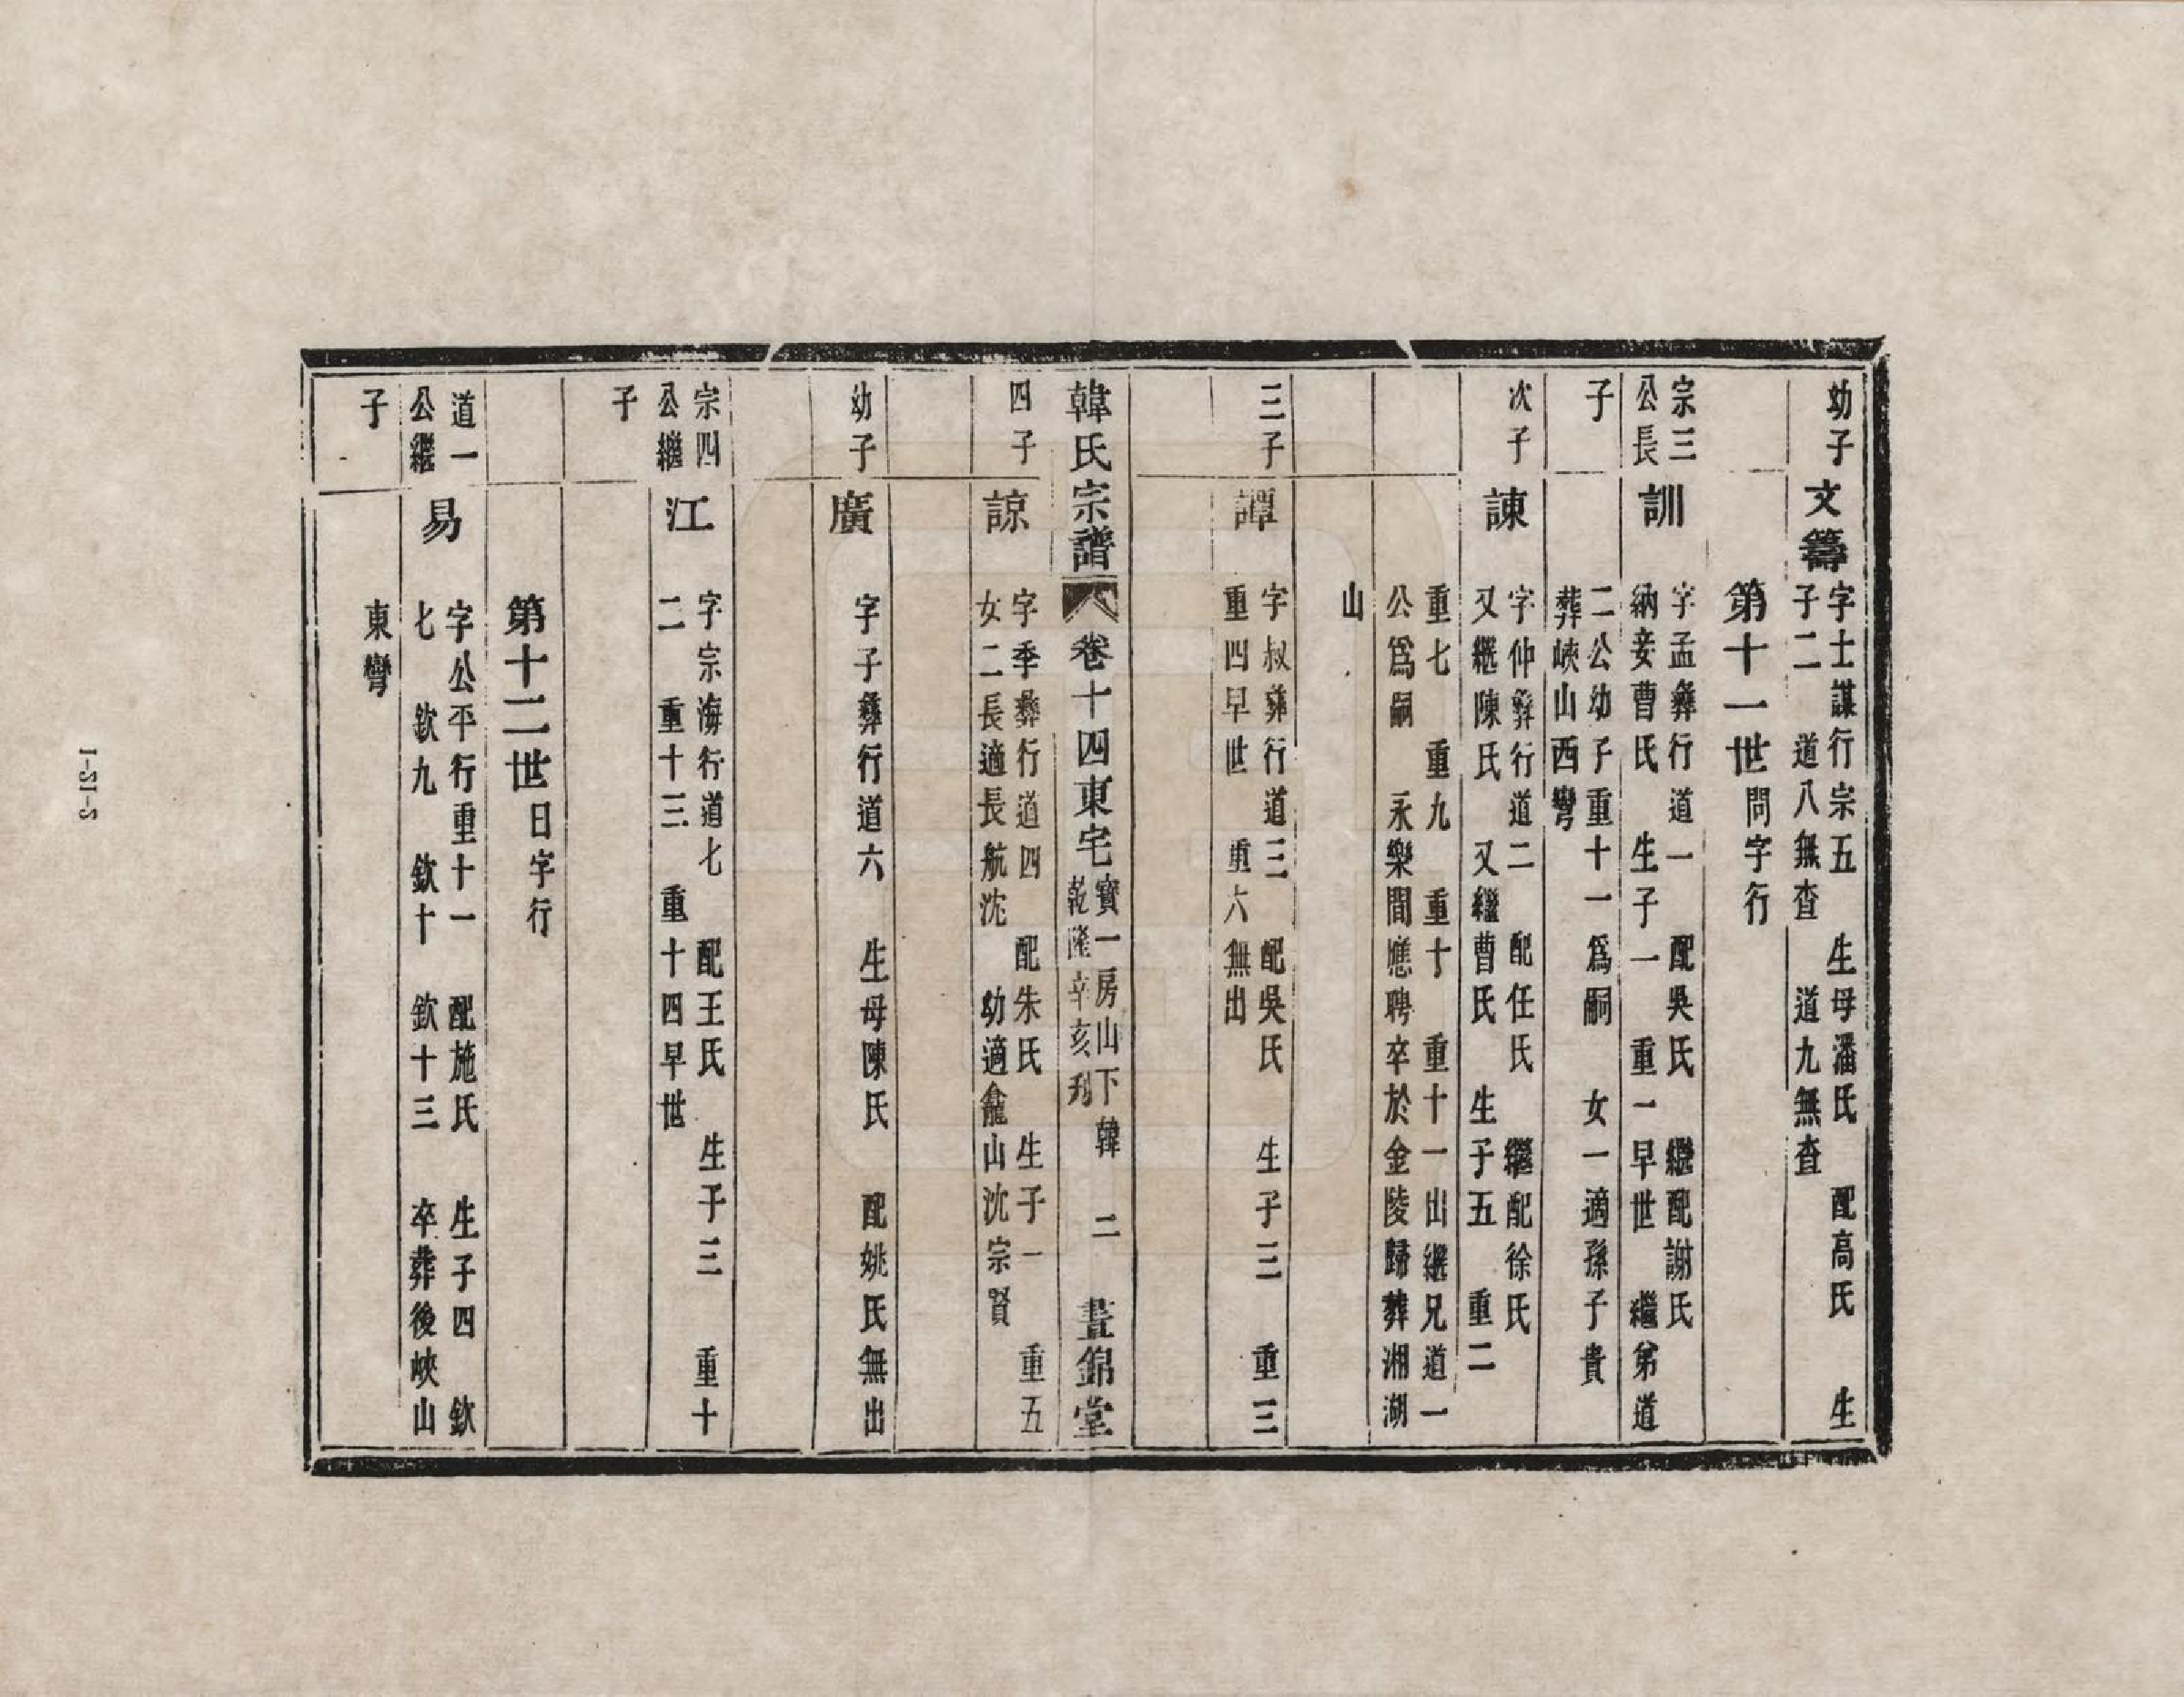 幼子
文籌
字士謀行宗五 生母潘氏 配高氏 生
子二 道八無查 道九無查
第十一世問字行
宗三
公長
子
訓
字孟彝行道一 配吳氏 繼配謝氏
納妾曹氏 生子一 重一早世 繼弟道
二公幼子重十一爲嗣 女一適孫子貴
葬峽山西彎
次子
諌
字仲彝行道二 配任氏 繼配徐氏
又繼陳氏 又繼曹氏 生子五 重二
重七 重九 重十 重十一出繼兄道一
公爲嗣 永樂間應聘卒於金陵歸葬湘湖
山
三子
譚
字叔彝行道三 配吳氏 生子三 重三
重四早世 重六無出
韓氏宗譜
卷十四東宅
寶一房山下韓
乾隆辛亥刋
二
晝錦堂
四子
諒
字季彝行道四 配朱氏 生子一 重五
女二長適長航沈 幼適龕山沈宗賢
幼子
廣
字子彝行道六 生母陳氏 配姚氏無出
宗四
公繼
子
江
字宗海行道七 配王氏 生子三 重十
二 重十三 重十四早世
第十二世日字行
道一
公繼
子
易
字公平行重十一 配施氏 生子四 欽
七 欽九 欽十 欽十三 卒葬後峽山
東彎
1-21-2